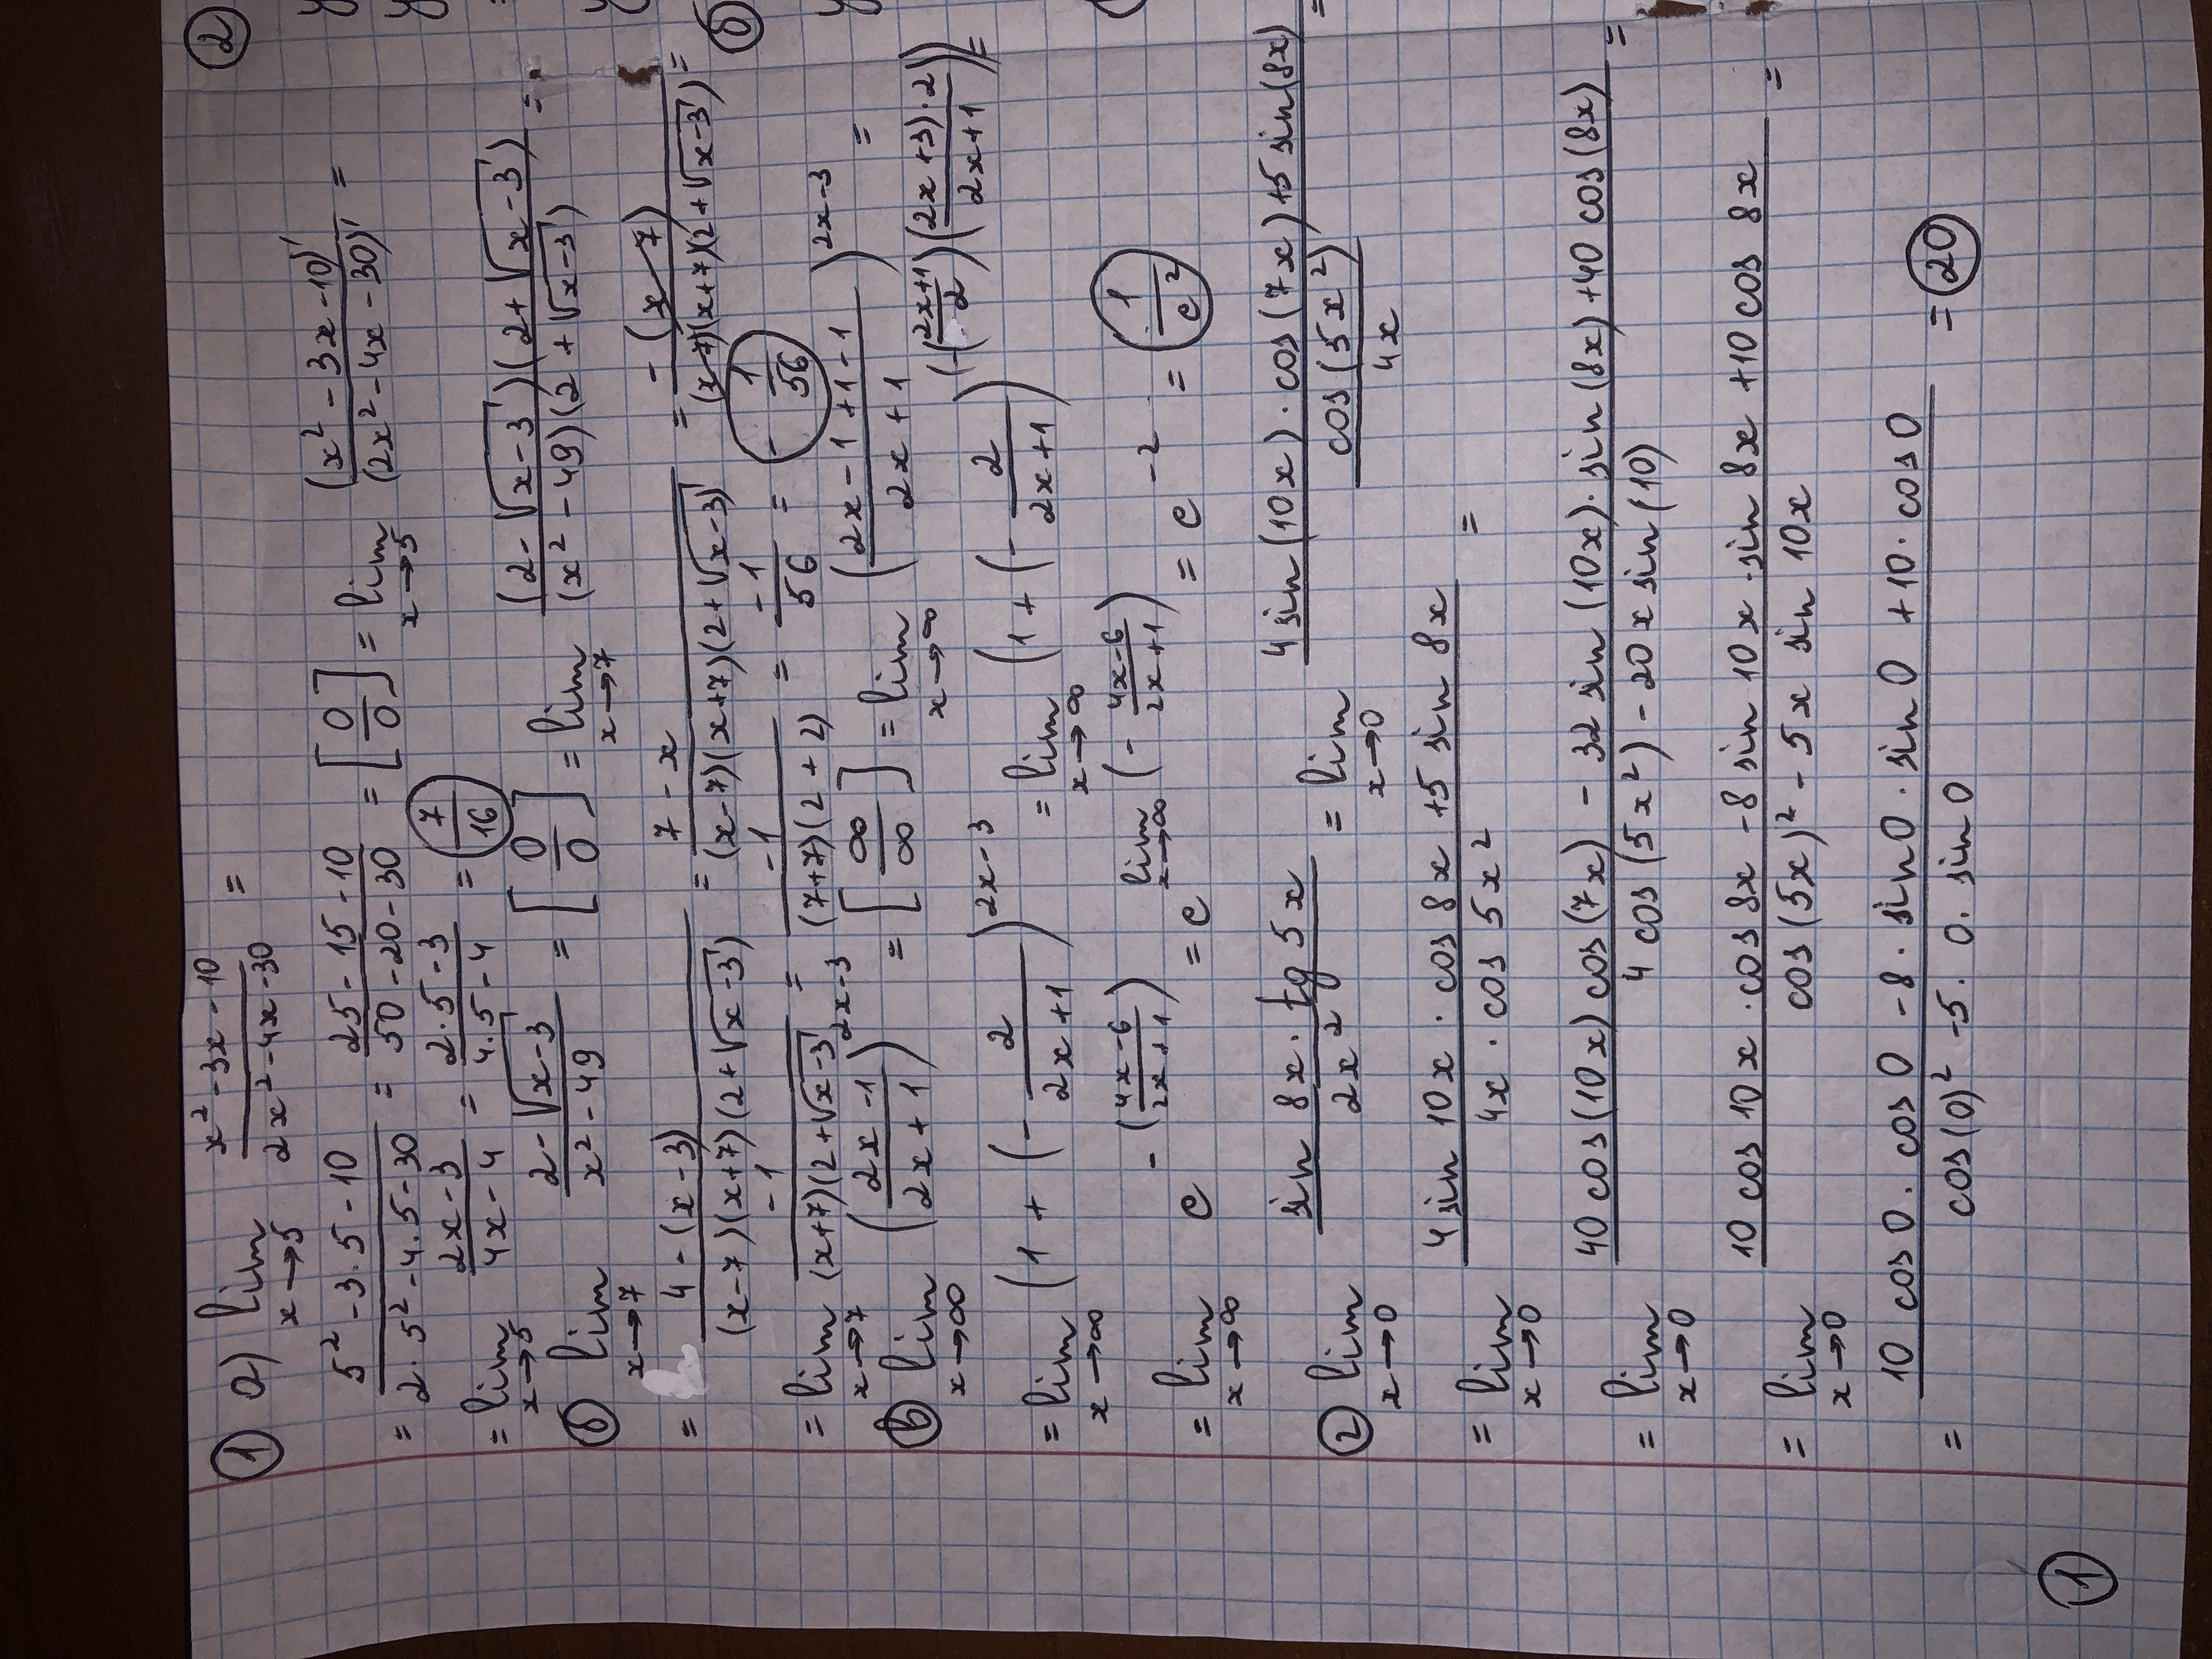 ① а) lim x→5 (x² - 3x - 10)/(2x² - 4x - 30) =
= (5² - 3·5 - 10)/(2·5² - 4·5 - 30) = (25 - 15 - 10)/(50 - 20 - 30) = [0/0] = lim x→5 (x² - 3x - 10)'/(2x² - 4x - 30)' =
= lim x→5 (2x - 3)/(4x - 4) = (2·5 - 3)/(4·5 - 4) = 7/16
б) lim x→7 (2 - √(x-3))/(x² - 49) = [0/0] = lim x→7 ((2 - √(x-3))(2 + √(x-3)))/((x² - 49)(2 + √(x-3))) =
= (4 - (x - 3))/((x-7)(x+7)(2+√(x-3))) = (7 - x)/((x-7)(x+7)(2+√(x-3))) = (-(x-7))/((x-7)(x+7)(2+√(x-3))) =
= lim x→7 (-1)/((x+7)(2+√(x-3))) = (-1)/((7+7)(2+2)) = (-1)/56 = -1/56
в) lim x→∞ ((2x-1)/(2x+1))^(2x-3) = [∞/∞] = lim x→∞ ((2x-1+1-1)/(2x+1))^(2x-3) =
= lim x→∞ (1 + (-2/(2x+1))^(2x-3) = lim x→∞ (1 + (-2/(2x+1))^(-((2x+1)/2)((2x+3)·2/(2x+1))) =
= lim x→∞ e^(-((4x-6)/(2x+1))) = e^(lim x→∞ (-(4x-6)/(2x+1))) = e^(-2) = 1/e²
② lim x→0 (sin 8x · tg 5x)/(2x²) = lim x→0 ((4 sin(10x) · cos(7x) + 5 sin(8x))/cos(5x²))/(4x) =
= lim x→0 (4 sin 10x · cos 8x + 5 sin 8x)/(4x · cos 5x²) =
= lim x→0 (40 cos(10x) cos(7x) - 32 sin(10x) · sin(8x) + 40 cos(8x))/(4 cos(5x²) - 20x sin(10)) =
= lim x→0 (10 cos 10x · cos 8x - 8 sin 10x · sin 8x + 10 cos 8x)/(cos(5x)² - 5x sin 10x) =
= (10 cos 0 · cos 0 - 8 · sin 0 · sin 0 + 10 · cos 0)/(cos(0)² - 5 · 0 · sin 0) = 20
①
②
y
y
y
б
y